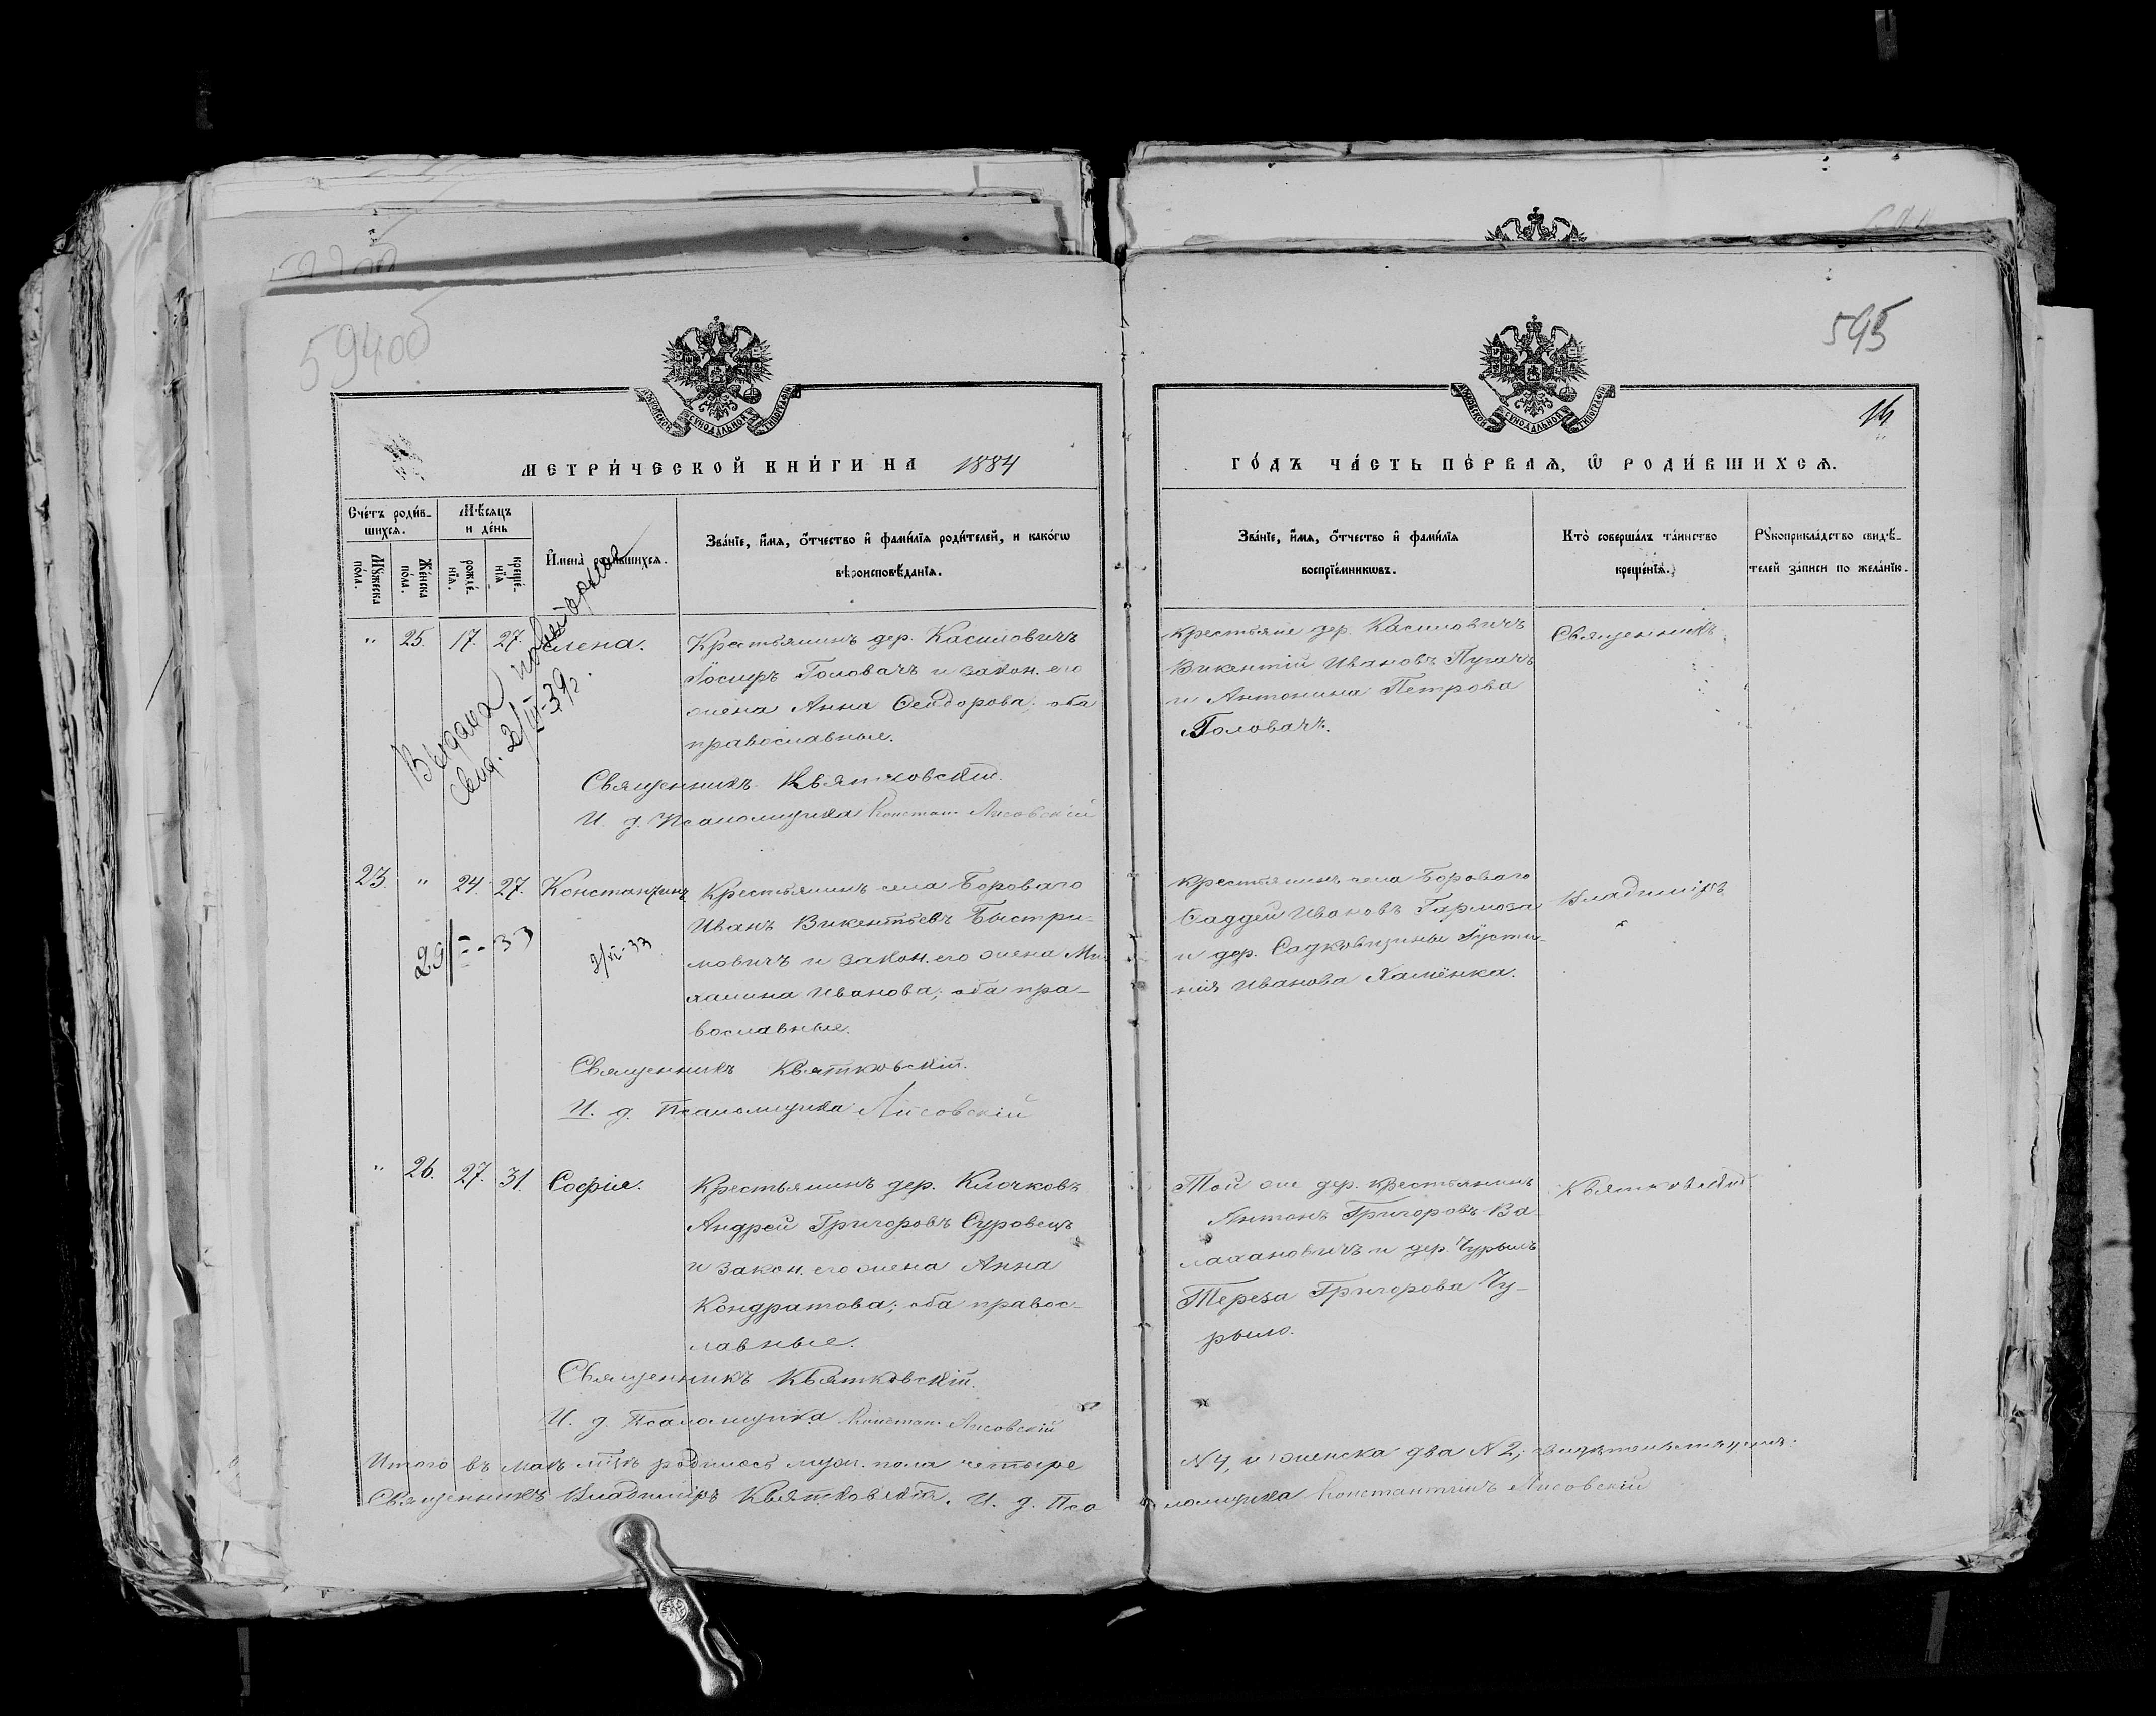 594об
595
14
МОСКОВСКОЙ СѴНОДАЛЬНОЙ ТИПОГРАФІИ
МОСКОВСКОЙ СѴНОДАЛЬНОЙ ТИПОГРАФІИ
МЕТРИ́ЧЕСКОЙ КНИ́ГИ НА 1884
ГО́ДЪ ЧА́СТЬ ПЕ́РВАѦ, Ѽ РОДИ́ВШИХСѦ.
Сче́тъ роди́в-
шихсѧ.
Мѣ́сѧцъ
и де́нь
Мꙋ́жеска
по́ла.
Же́нска
по́ла.
рожде́-
нїѧ.
креще́-
нїѧ.
И҆мена̀ роди́вшихсѧ.
Зва́нїе, и҆́мѧ, ѻ҆́тчество и҆ фами́лїѧ роди́телей, и како́гѡ
вѣроисповѣ́данїѧ.
Зва́нїе, и҆́мѧ, ѻ҆́тчество и҆ фами́лїѧ
воспрїе́мникѡвъ.
Кто̀ соверша́лъ та́инство
креще́нїѧ.
Рꙋкоприкла́дство свидѣ́-
телей за́писи по жела́нїю.
" 25. 17. 27. Елена.
Крестьянинъ дер. Касиловичъ
Іосифъ Головачъ и закон. его
жена Анна Сидорова; оба
православные.
Священникъ Квятковскій.
И. д. Псаломщика Констан. Лисовскій
Выдана повторная
свид. 2/IV-39г.
Крестьяне дер. Касиловичъ
Викентій Ивановъ Пугачъ
и Антонина Петрова
Головачъ.
Священникъ
23. " 24. 27. Константинъ
Крестьянинъ села Бороваго
Иванъ Викентьевъ Быстри-
мовичъ и закон. его жена Ма-
ланина Иванова; оба пра-
вославные.
Священникъ Квятковскій.
И. д. Псаломщика Лисовскій
2/VI-33
Крестьянинъ села Бороваго
Фаддей Ивановъ Гармоза
и дер. Садковщины Іусти-
нія Иванова Хамёнка.
Владиміръ
" 26. 27. 31. Софія.
Крестьянинъ дер. Клочковъ
Андрей Григоровъ Суровецъ
и закон. его жена Анна
Кондратова; оба правос-
лавные.
Священникъ Квятковскій.
И. д. Псаломщика Констан. Лисовскій
Той же дер. крестьянинъ
Антонъ Григоровъ Ва-
лахановичъ и дер. Чурылъ
Тереза Григорова Чу-
рыло.
Квятковскій
Итого въ маѣ м-цѣ родилось муж. пола четыре
№ 4, и женска два № 2;
Священникъ Владиміръ Квятковскій. И. д. Пса
ломщика Константинъ Лисовскій